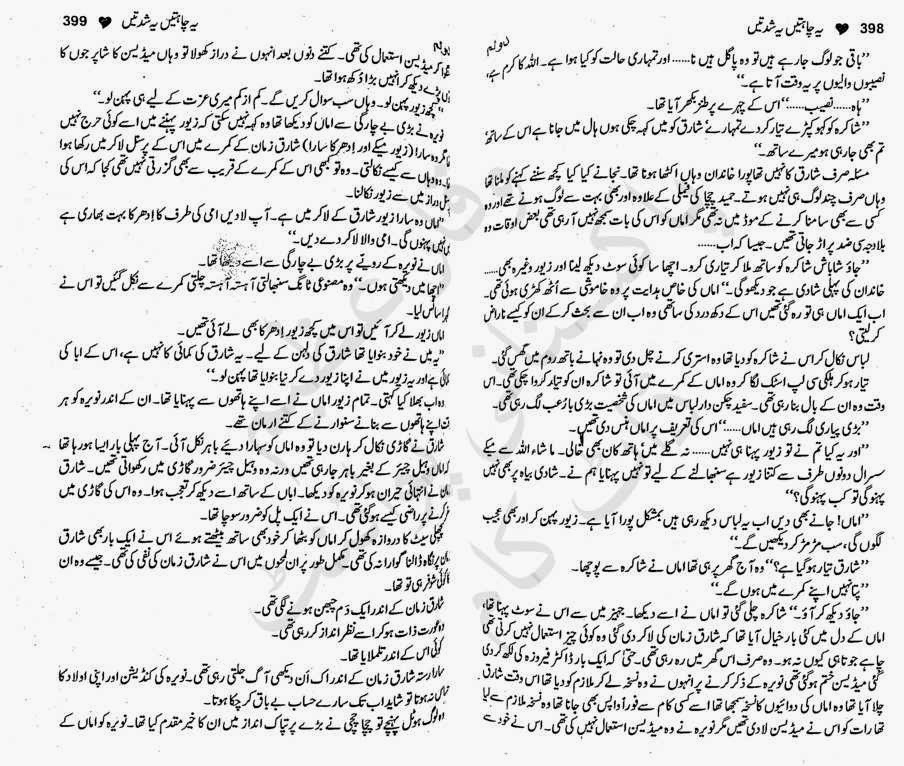 398 ♥ یہ چاہتیں یہ شدتیں
’’باقی جو لوگ جا رہے ہیں تو وہ پاگل ہیں نا...... اور تمہاری حالت کو کیا ہوا ہے۔ اللہ کا کرم ہے،
نصیبوں والیوں پر یہ وقت آتا ہے۔‘‘
’’ہاہ...... نصیب......‘‘ اس کے چہرے پر طنز بکھر آیا تھا۔
’’شاکرہ کو کہو کپڑے تیار کر دے تمہارے شارق کو میں کہہ چکی ہوں ہال میں جانا ہے اس کے ساتھ
تم بھی جا رہی ہو میرے ساتھ۔‘‘
مسئلہ صرف شارق کا نہیں تھا پورا خاندان وہاں اکٹھا ہونا تھا۔ نجانے کیا کیا کچھ سننے کہنے کو ملنا تھا
وہاں صرف چند لوگ ہی نہیں ہوتے۔ حمید چچا کی فیملی کے علاوہ اور بھی بہت سے لوگ ہونے تھے اور وہ
کسی سے بھی سامنا کرنے کے موڈ میں نہ تھی مگر اماں کو اس کی بات سمجھ نہیں آ رہی تھی بعض اوقات وہ
بلاوجہ ہی ضد پر اڑ جاتی تھیں۔ جیسا کہ اب......
’’جاؤ شاباش شاکرہ کو ساتھ ملا کر تیاری کرو۔ اچھا سا کوئی سوٹ دیکھ لینا اور زیور وغیرہ بھی......
خاندان کی پہلی شادی ہے جو دیکھو گی۔‘‘ اماں کی خاص ہدایت پر وہ خاموشی سے اٹھ کھڑی ہوئی تھی۔
اب ایک اماں ہی تو رہ گئی تھیں اس کے دکھ درد کی ساتھی وہ اب ان سے بحث کر کے ان کو کیسے ناراض
کر لیتی؟
لباس نکال کر اس نے شاکرہ کو دیا تھا وہ استری کرنے چل دی تو وہ نہانے باتھ روم میں گھس گئی۔
تیار ہو کر ہلکی سی لپ اسٹک لگا کر وہ اماں کے کمرے میں آئی تو شاکرہ ان کو تیار کروا چکی تھی۔ اس
وقت وہ ان کے بال بنا رہی تھی۔ سفید چکن دار لباس میں اماں کی شخصیت بڑی بارعب لگ رہی تھی۔
’’بڑی پیاری لگ رہی ہیں اماں......‘‘ اس کی تعریف پر اماں ہنس دی تھیں۔
’’اور یہ کیا تم نے تو زیور پہنا ہی نہیں...... نہ گلے میں ہاتھ کان بھی خالی۔ ما شاء اللہ سے میکے
سسرال دونوں طرف سے کتنا زیور ہے سنبھالنے کے لیے تو نہیں پہنایا ہم نے۔ شادی بیاہ پر بھی نہیں
پہنو گی تو کب پہنو گی؟‘‘
’’اماں! جانے بھی دیں اب یہ لباس دیکھ رہی ہیں بمشکل پورا آیا ہے۔ زیور پہن کر اور بھی عجیب
لگوں گی، سب مڑ مڑ کر دیکھیں گے۔‘‘
’’شارق تیار ہو گیا ہے؟‘‘ وہ آج گھر پر ہی تھا اماں نے شاکرہ سے پوچھا۔
’’پتا نہیں اپنے کمرے میں ہوں گے۔‘‘
’’جاؤ دیکھ کر آؤ۔‘‘ شاکرہ چلی گئی تو اماں نے اسے دیکھا۔ جہیز میں سے اس نے سوٹ پہنا تھا،
اماں کے دل میں کئی بار خیال آیا تھا کہ شارق زمان کی لا کر دی گئی وہ کوئی چیز استعمال نہیں کرتی تھی
چاہے جوتا ہی کیوں نہ ہو۔ وہ صرف اس گھر میں رہ رہی تھی۔ حتیٰ کہ ایک بار ڈاکٹر فیروزہ کی لکھ کر دی
گئی میڈیسن ختم ہو گئی تھی نویرہ کے ذکر کرنے پر انہوں نے وہ نسخہ لے کر ملازم کو دیا تھا اس وقت شارق
چلا آیا تھا وہ اماں کی دوائیوں کا نسخہ سمجھا تھا اسے کسی کام سے فوراً واپس بھی جانا تھا وہ نسخہ ملازم سے لیا
تھا رات کو اس نے میڈیسن لا دی تھیں مگر نویرہ نے وہ میڈیسن استعمال نہیں کی تھی۔ اس نے خود سے
یہ چاہتیں یہ شدتیں ♥ 399
میڈیسن استعمال کی تھی۔ کتنے دنوں بعد انہوں نے دراز کھولا تو وہاں میڈیسن کا شاپر جوں کا
پڑے دیکھ کر انہیں بڑا دکھ ہوا تھا۔
’’کچھ زیور پہن لو۔ وہاں سب سوال کریں گے۔ کم از کم میری عزت کے لیے ہی پہن لو۔‘‘
نویرہ نے بڑی بے چارگی سے اماں کو دیکھا تھا وہ کہہ نہیں سکتی کہ زیور پہننے میں اسے کوئی حرج نہیں
مگر وہ سارا (زیور میکے اور اِدھر کا سارا) شارق زمان کے کمرے میں اس کے پرسنل لاکر میں رکھا ہوا
وہ وہاں سے کیسے نکالتی۔ وہ تو کبھی اس کے کمرے کے قریب سے بھی گزرتی نہیں تھی کجا کہ اس کی
دراز میں سے زیور نکالنا۔
’’اماں وہ سارا زیور شارق کے لاکر میں ہے۔ آپ لا دیں امی کی طرف کا اِدھر کا بہت بھاری ہے
نہیں پہنوں گی۔ امی والا لا کر دے دیں۔‘‘
اماں نے نویرہ کے رونے پر بڑی بے چارگی سے اسے دیکھا تھا۔
’’اچھا میں دیکھتی ہوں۔‘‘ وہ مصنوعی ٹانگ سنبھالتی آہستہ آہستہ چلتی کمرے سے نکل گئیں تو اس نے
سانس لیا۔
اماں زیور لے کر آئیں تو اس میں کچھ زیور اِدھر کا بھی لے آئی تھیں۔
’’یہ میں نے خود بنوایا تھا شارق کی دلہن کے لیے۔ یہ شارق کی کمائی کا نہیں ہے، اس کے ابا کی
ہے اور یہ زیور میں نے اپنا زیور دے کر نیا بنوایا تھا پہن لو۔‘‘
وہ اب بھلا کیا کہتی۔ تمام زیور اماں نے اسے اپنے ہاتھوں سے پہنایا تھا۔ ان کے اندر نویرہ کو ہر
اپنے ہاتھوں سے بنانے سنوارنے کے کتنے ارمان تھے۔
شارق نے گاڑی نکال کر ہارن دیا تو وہ اماں کو سہارا دیے باہر نکل آئی۔ آج پہلی بار ایسا ہو رہا تھا
اماں وہیل چیئر کے بغیر باہر جا رہی تھیں ورنہ وہ وہیل چیئر ضرور گاڑی میں رکھواتی تھیں۔ شارق
نے انتہائی حیران ہو کر نویرہ کو دیکھا۔ اماں کے ساتھ اسے دیکھ کر تعجب ہوا۔ وہ اس کی گاڑی میں
کرنے پر راضی کیسے ہو گئی تھی۔ اس نے ایک پل کو ضرور سوچا تھا۔
پچھلی سیٹ کا دروازہ کھول کر اماں کو بٹھا کر خود بھی ساتھ بیٹھتے ہوئے اس نے ایک بار بھی شارق
پر نگاہ ڈالنا گوارا نہ کی تھی۔ مکمل طور پر ان لمحوں میں اس نے شارق زمان کی نفی کی تھی۔ جیسے وہ ان
کا کوئی شوفر ہی تو تھا۔
شارق زمان کے اندر ایک دَم چبھن ہونے لگی تھی۔
وہ عورت ذات ہو کر اسے نظر انداز کر رہی تھی۔
کوئی اس کے اندر تلملایا تھا۔
سارا رستہ شارق زمان کے اندر اک اَن دیکھی آگ جلتی رہی تھی۔ نویرہ کی کنڈیشن اور اپنی اولاد کا
نہ ہوتا تو شاید اب تک سارے حساب بے باق کر چکا ہوتا۔
وہ لوگ ہوٹل پہنچے تو چچا چچی نے بڑے پرتپاک انداز میں ان کا خیر مقدم کیا تھا۔ نویرہ کو اماں کے